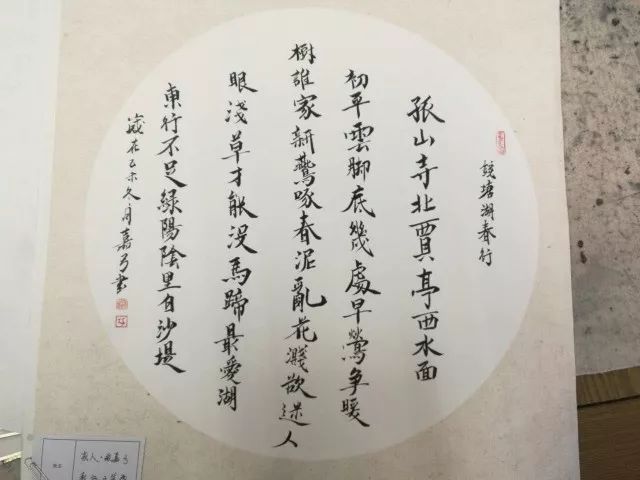 錢塘湖春行
孤山寺北賈亭西水面
初平雲脚底幾處早鶯争暖
樹誰家新鷰啄春泥亂花濺欲迷人
眼淺草才能没馬蹄最愛湖
東行不足緑陽陰里白沙堤
嵗在乙未冬月嘉弓書
家人·